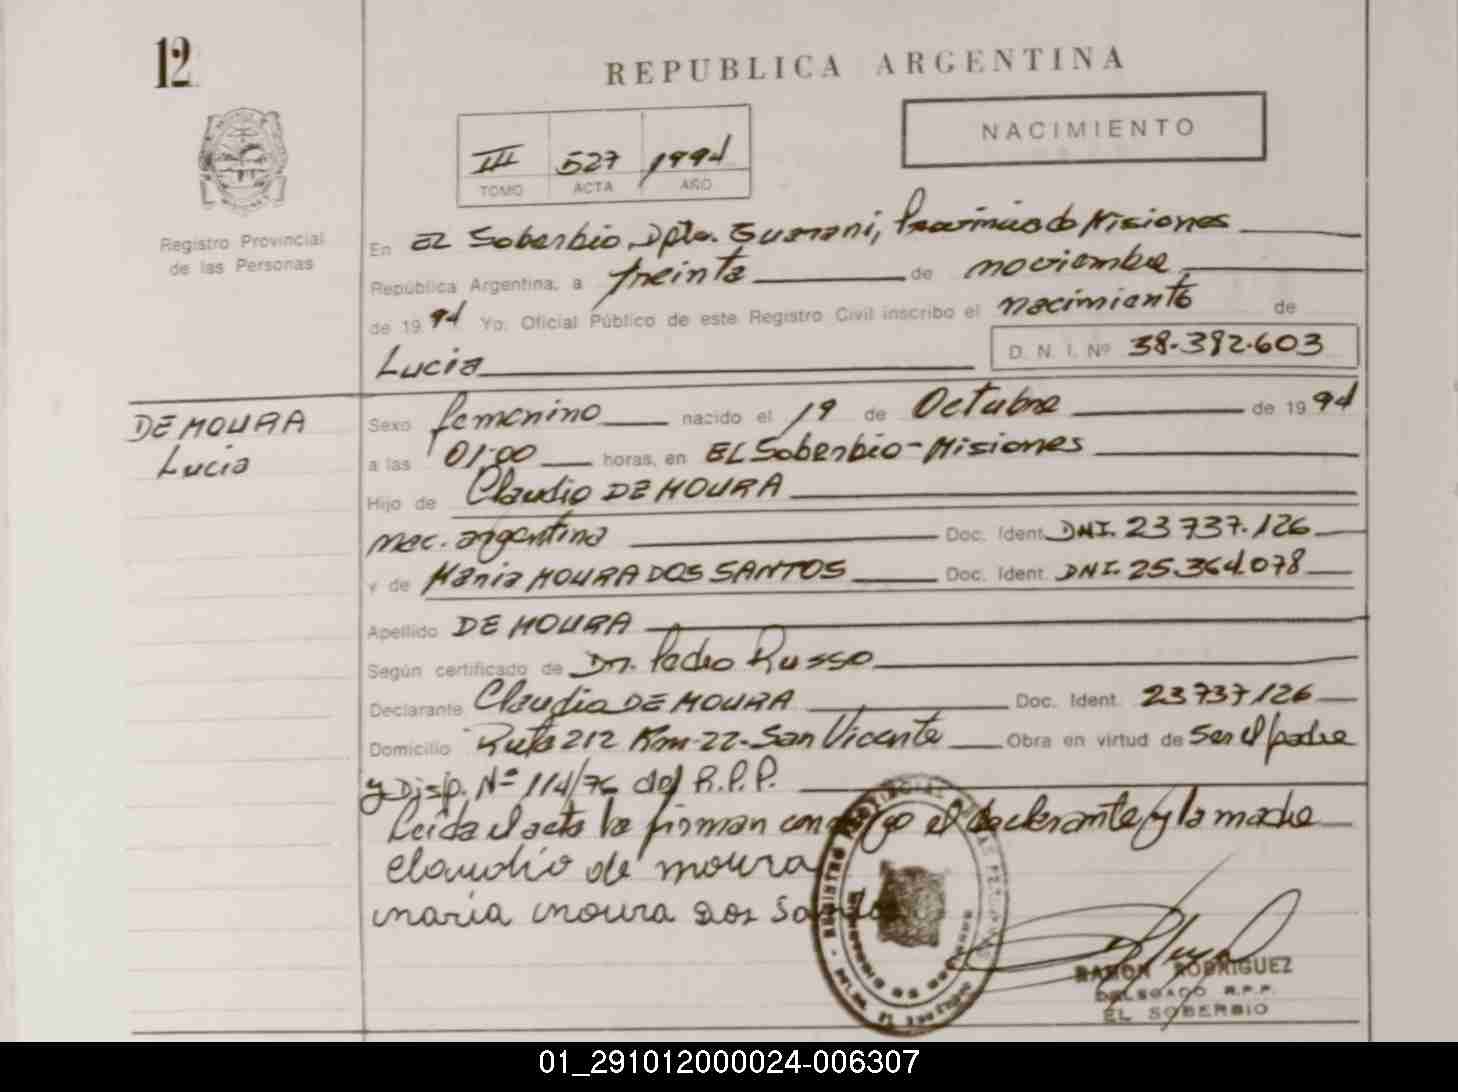 12
REPUBLICA ARGENTINA
NACIMIENTO
III 527 1994
TOMO ACTA AÑO
Registro Provincial
de las Personas
En El Soberbio, Dpto. Guarani, Provincia de Misiones
República Argentina, a treinta de noviembre
de 1994 Yo, Oficial Público de este Registro Civil inscribo el nacimiento de
Lucia D. N. I. Nº 38.392.603
DE MOURA
Lucia
Sexo femenino nacido el 19 de Octubre de 1994
a las 01:00 horas, en El Soberbio - Misiones
Hijo de Claudio DE MOURA
nac. argentina Doc. Ident. DNI. 23 737.126
y de Maria MOURA DOS SANTOS Doc. Ident. DNI. 25.364.078
Apellido DE MOURA
Según certificado de Dr. Pedro Russo
Declarante Claudio DE MOURA Doc. Ident. 23 737 126
Domicilio Ruta 212 Km-22-San Vicente Obra en virtud de Ser el padre
y Disp. Nº 114/76 del R.P.P.
Leida el acta la firman conmigo el declarante y la madre
Claudio de moura
maria moura dos Santos
RAMON RODRIGUEZ
DELEGADO R.P.P.
EL SOBERBIO
01_291012000024-006307